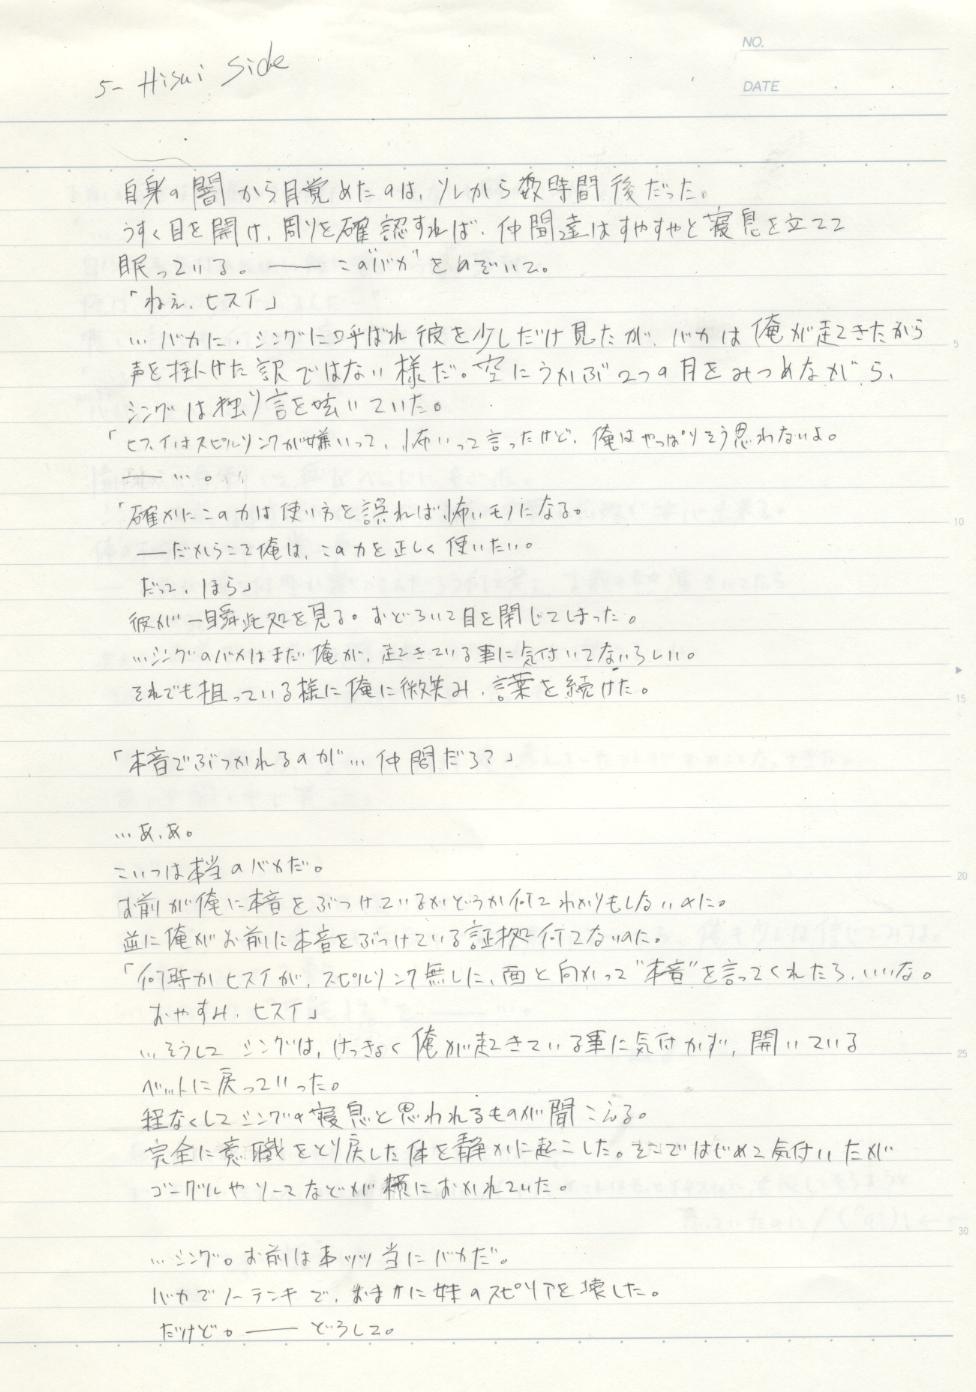 NO.
DATE
5- Hisui Side
自身の闇から目覚めたのは、ソレから数時間後だった。
うすく目を開け、周りを確認すれば、仲間達はすやすやと寝息を立てて
眠っている。——この“バカ”をのぞいて。
「ねぇ、ヒスイ」
…バカに、シングに呼ばれ彼を少しだけ見たが、バカは俺が起きたから
声を掛けた訳ではない様だ。空にうかぶ2つの月をみつめながら、
シングは独り言を呟いていた。
「ヒスイはスピルリンクが嫌いって、怖いって言ったけど、俺はやっぱりそう思わないよ。
——…。
「確かにこの力は使い方を誤れば、怖いモノになる。
——だからこそ俺は、この力を正しく使いたい。
だって、ほら」
彼が一瞬此処を見る。おどろいて目を閉じてしまった。
…シングのバカはまだ俺が、起きている事に気付いてないらしい。
それでも狙っている様に俺に微笑み、言葉を続けた。
「本音でぶつかれるのが…仲間だろ?」
…あ、あ。
こいつは本当のバカだ。
お前が俺に本音をぶつけているかどうか何てわかりもしないのに。
並に俺がお前に本音をぶつけている証拠何てないのに。
「何時かヒスイが、スピルリンク無しに、面と向かって“本音”を言ってくれたら、いいな。
おやすみ、ヒスイ」
…そうして シングは、けっきょく俺が起きている事に気付かず、開いている
ベットに戻っていった。
程なくしてシングの寝息と思われるものが聞こえる。
完全に意識をとり戻した体を静かに起こした。そこではじめて気付いたが
ゴーグルやソーマなどが横におかれていた。
…シング。お前は本ッッ当にバカだ。
バカでノーテンキで、おまけに妹のスピリアを壊した。
だけど。——どうして。
5
10
15
20
25
30